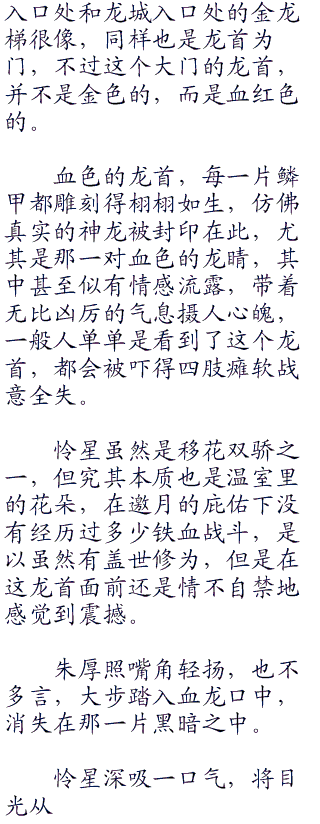 入口处和龙城入口处的金龙
梯很像，同样也是龙首为
门，不过这个大门的龙首，
并不是金色的，而是血红色
的。
血色的龙首，每一片鳞
甲都雕刻得栩栩如生，仿佛
真实的神龙被封印在此，尤
其是那一对血色的龙睛，其
中甚至似有情感流露，带着
无比凶厉的气息摄人心魄，
一般人单单是看到了这个龙
首，都会被吓得四肢瘫软战
意全失。
怜星虽然是移花双骄之
一，但究其本质也是温室里
的花朵，在邀月的庇佑下没
有经历过多少铁血战斗，是
以虽然有盖世修为，但是在
这龙首面前还是情不自禁地
感觉到震撼。
朱厚照嘴角轻扬，也不
多言，大步踏入血龙口中，
消失在那一片黑暗之中。
怜星深吸一口气，将目
光从